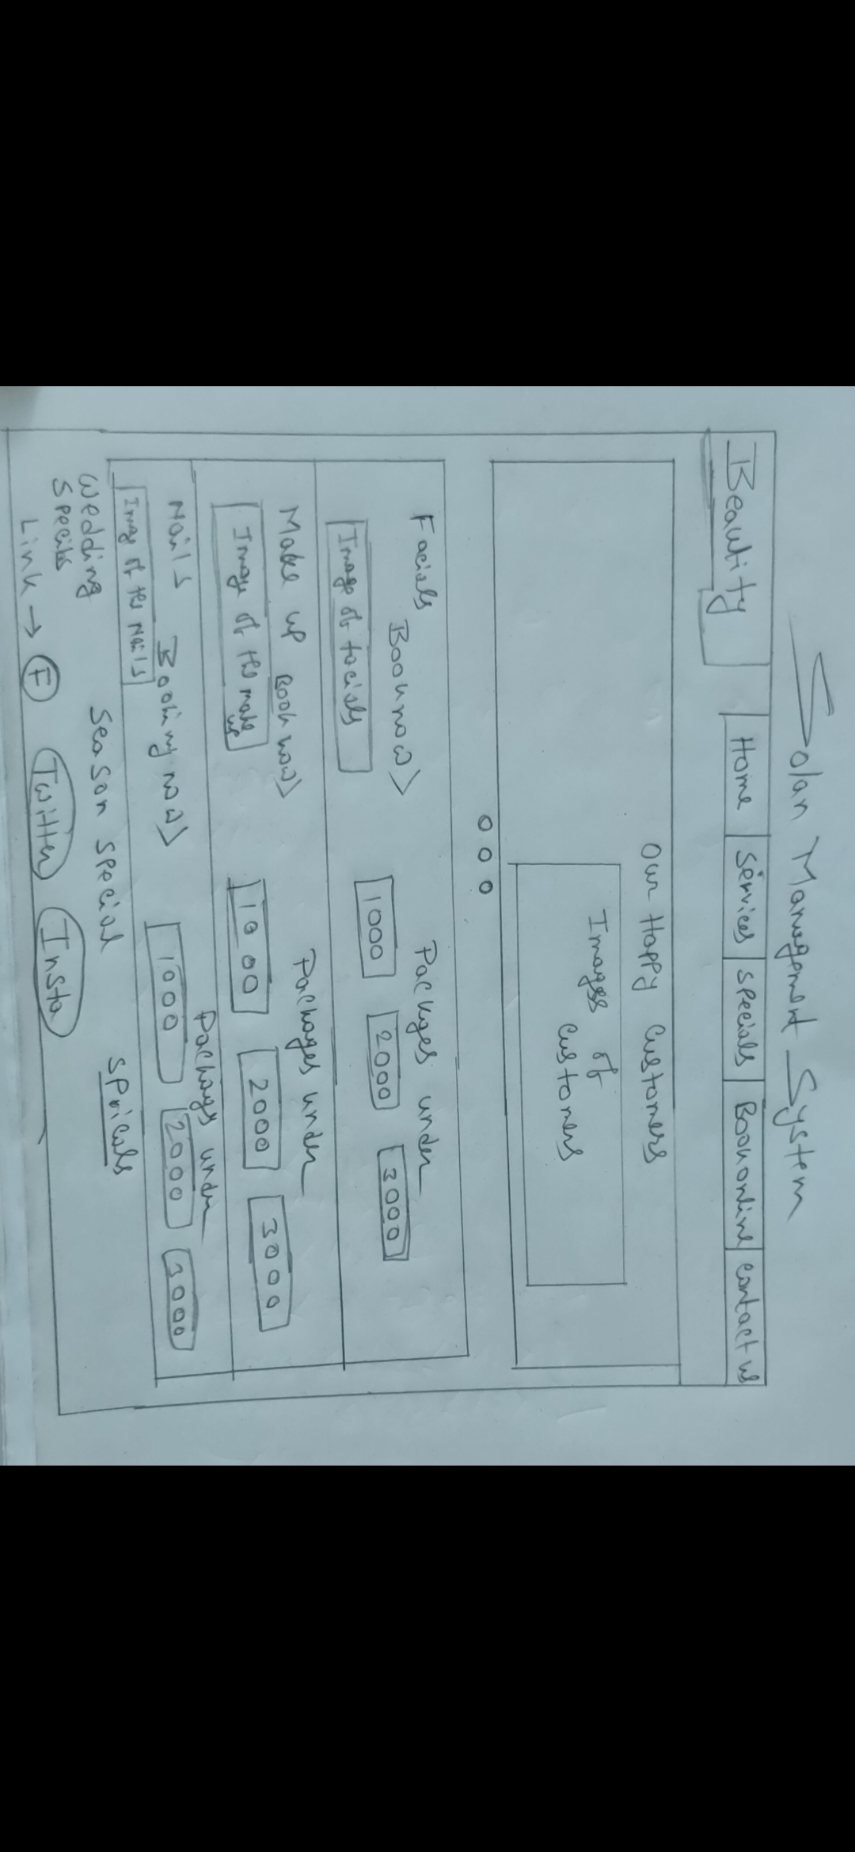 Solan Management System
Beautity
Home Services Specials Book online contact us
Our Happy Customers
Images of
Customers
Facials
Book now>
Image of facials
Packges under
1000 2000 3000
Make up Book now>
Image of the make
up
Packages under
1000 2000 3000
Nails Booking now>
Image of the Nails
Package under
1000 2000 3000
Wedding
Specils
Season special
Link → F Twitter Insta